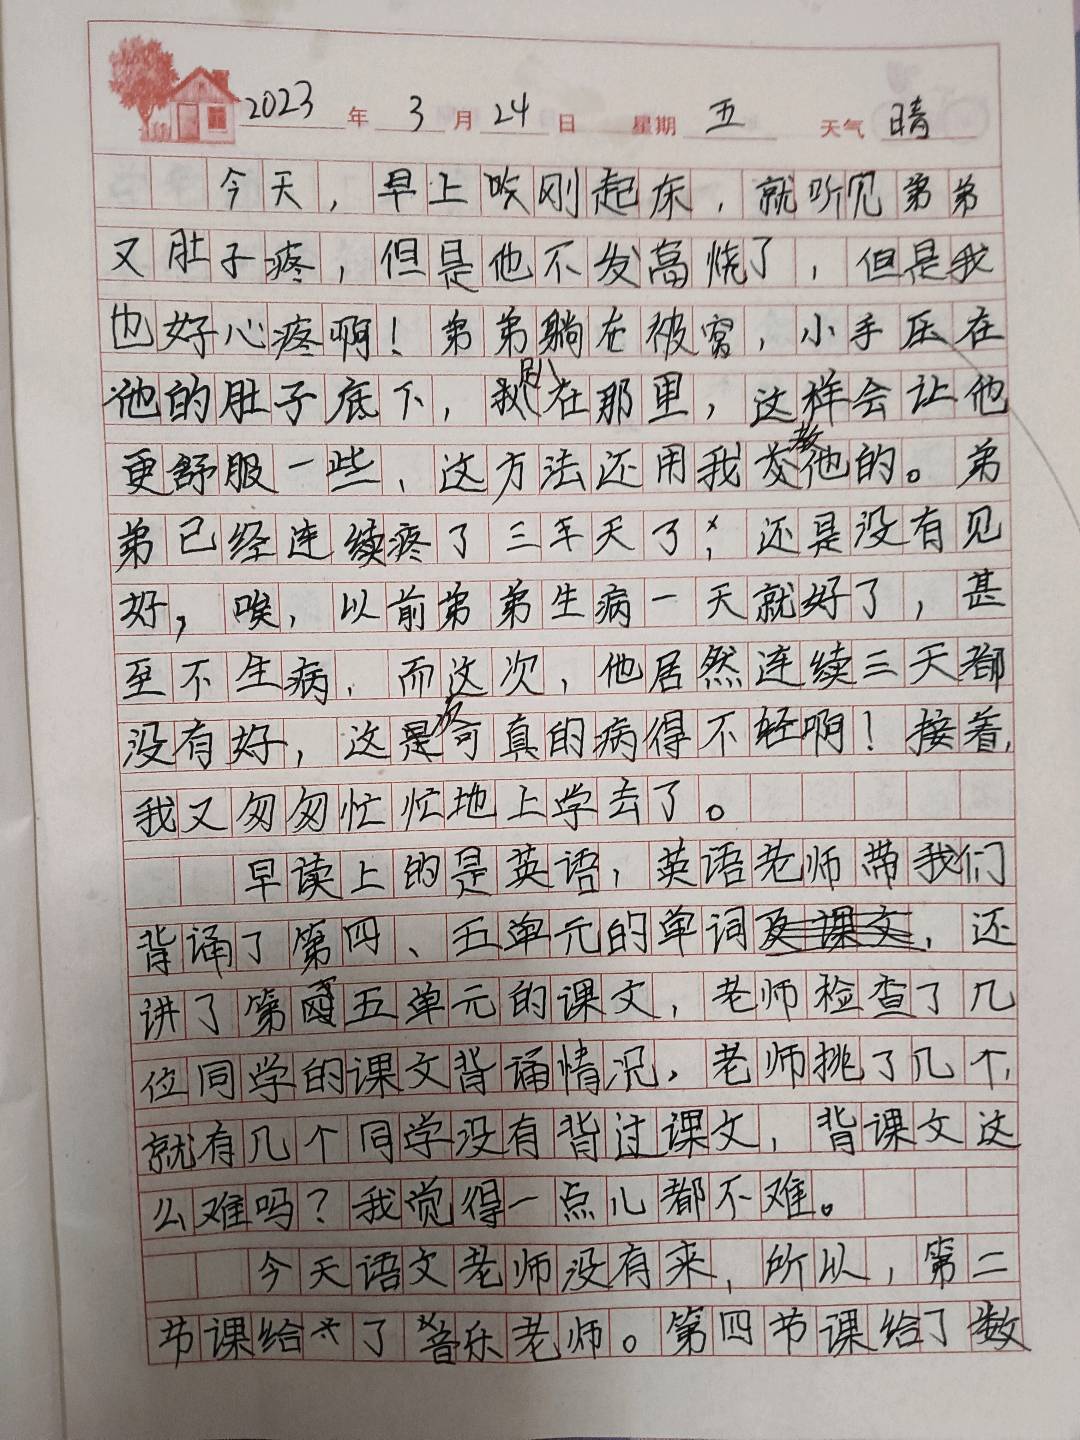 2023年3月24日 星期五 天气晴
今天，早上刚起床，就听见弟弟
又肚子疼，但是他不发高烧了，但是我
也好心疼啊！弟弟躺在被窝，小手压在
他的肚子底下，我趴在那里，这样会让他
更舒服一些，这方法还用我教他的。弟
弟已经连续疼了三年天了，还是没有见
好，唉，以前弟弟生病一天就好了，甚
至不生病，而这次，他居然连续三天都
没有好，这是次可真的病得不轻啊！接着，
我又匆匆忙忙地上学去了。
早读上的是英语，英语老师带我们
背诵了第四、五单元的单词及课文，还
讲了第四五单元的课文，老师检查了几
位同学的课文背诵情况，老师挑了几个，
就有几个同学没有背过课文，背课文这
么难吗？我觉得一点儿都不难。
今天语文老师没有来，所以，第二
节课给了音乐老师。第四节课给了数